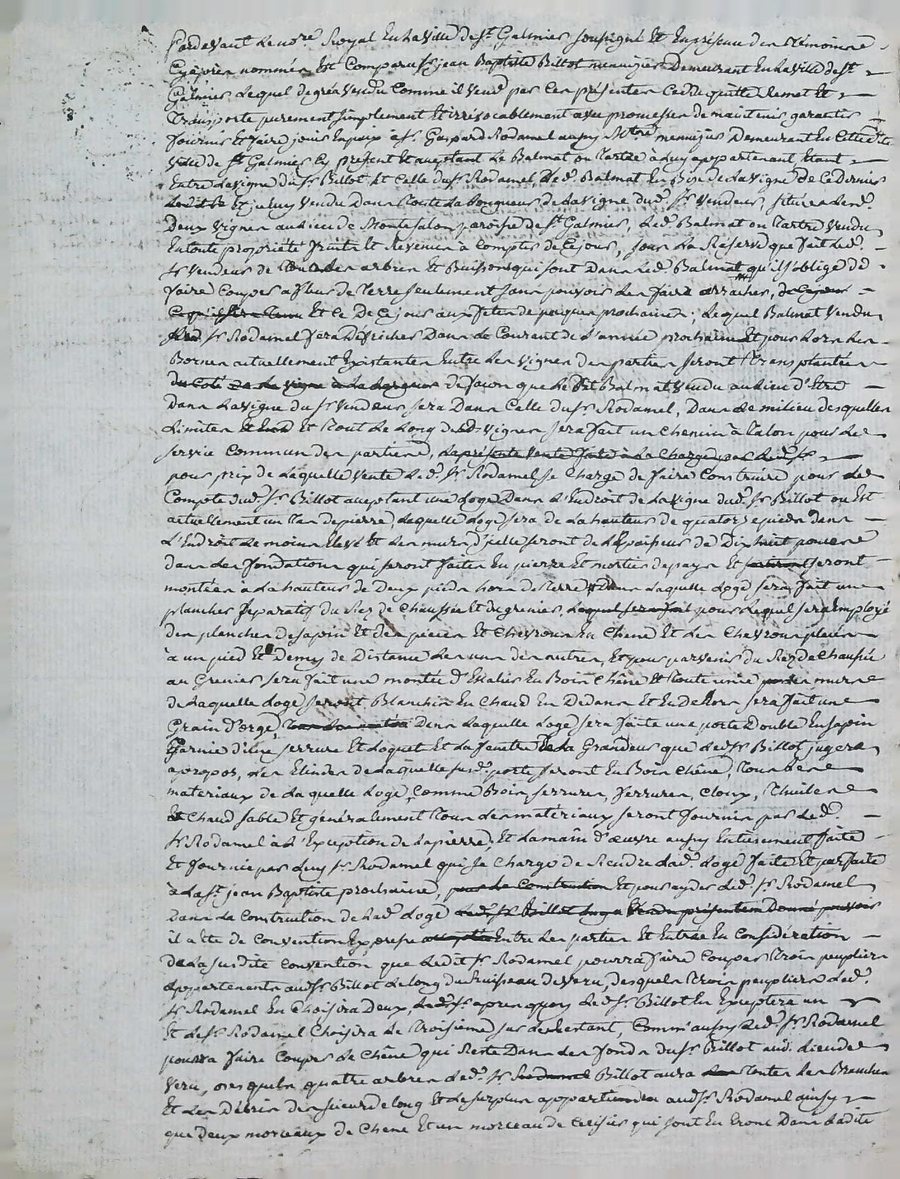 Pardevant Le no.re Royal En La Ville de St. Galmier soussigné Et En présence des Témoins
Cy après nommés Est Comparu Sr. jean Baptiste Billot menuizier Demeurant En La Ville de St.
Galmier Lequel de gré a Vendu Comme il Vend par Ces présentes Cedde quitte Remet Et
Transporte purement simplement Et irrévocablement avec promesses de maintenir garantir
fournir Et faire jouir Envers a Sr. Gaspard Rodamel aussy Me. menuizier Demeurant En Cette
Ville de St. Galmier Cy présent Et acceptant Le Balmat ou Tertre à Luy appartenant Etant
Entre La Vigne du Sr. Billot Et Celle du Sr. Rodamel, Led. Balmat En Bise de La Vigne de Ce Dernier
Et a Luy Vendu Dans Toute La Longueur de La Vigne dud. Sr. Vendeur, Situées Les
Deux Vignes au Lieu de Montesalon paroisse de St. Galmier, Led. Balmat ou Tertre Vendu
En toute propriété fruits Et Revenus à Compter de Ce jour, Sous La Réserve que fait Led.
Sr. Vendeur de Tous Les arbres Et Buissons qui sont Dans Led. Balmat qu'il s'oblige de
faire Couper a fleur de Terre seulement sans pouvoir Les faire arracher, de Ce jour
Et Ce De Ce jour aux fetes de paques prochaines; Lequel Balmat Vendu
Led. Sr. Rodamel fera Défricher Dans Le Courant de L'année prochaine Et pour Lors Les
Bornes actuellement Existantes Entre Les Vignes des parties seront Transplantées
du Coté de La Vigne à La Largeur de façon que Le Dit Balmat Vendu au Lieu d'Etre
Dans La Vigne du Sr. Vendeur sera Dans Celle du Sr. Rodamel, Dans Le milieu desquelles
Limites Et Tout Le Long desd. Vignes sera fait un Chemin à Talon pour Le
service Commun des parties, La présente Vente faite à La Charge par Led. Sr.
pour prix de Laquelle Vente Led. Sr. Rodamel se Charge de faire Construire pour Le
Compte dud. Sr. Billot acceptant une Loge Dans L'Endroit de La Vigne dud. Sr. Billot ou Est
actuellement un Tas de pierre, Laquelle Loge sera de La hauteur de quatorze pieds dans
L'Endroit Le moins Elevé Et Les murs d'icelle seront de L'Epaisseur de Dix huit pouces
dans Les fondations qui seront faites En pierre Et mortier de pays Et seront
montées a La hauteur de Deux pieds hors de Terre Dans Laquelle Loge sera fait un
plancher séparatif du Rez de Chaussée Et du grenier, Lequel sera fait pour Lequel sera Employé
des planches de sapin Et des pièces Et Chevrons En Chene Et Les Chevrons placés
à un pied Et Demy de Distance Les uns des autres, Et pour parvenir du Rez de Chaussée
au Grenier sera fait une montée d'Escalier En Bois Chêne Et Toute unie murs
de Laquelle Loge seront Blanchis En Chaud En Dedans Et En Dehors sera fait une
Grain d'orge, Dans Laquelle Loge sera faite une porte Double En sapin
Garnie d'une serrure Et Loquet Et La fenetre De La Grandeur que Led. Sr. Billot jugera
apropos, Les Elindes de Laquelle susd. porte seront En Bois Chêne, Tous Les
materiaux de La quelle Loge, Comme Bois, serrures, ferrures, Cloux, Thuiles
Et Chaud sable Et généralement Tous Les matériaux seront fournis par Led.
Sr. Rodamel à L'Exception de La pierre, Et La main d'œuvre aussy Entierement faite
Et fournie par Luy Sr. Rodamel qui se Charge de Rendre Lad. Loge faite Et parfaite
à La St. jean Baptiste prochaine, pour La Construction Et pour ayder Led. Sr. Rodamel
Dans La Construction de Lad. Loge Led. Sr. Billot
il a Eté de Convention Expresse Entre Les parties Et Entrée En Considération
de La susdite Convention que Ledit Sr. Rodamel pourra faire Couper Trois peupliers
appartenants aud. Sr. Billot Le Long du Ruisseau de Veru, desquels Trois peupliers Led.
Sr. Rodamel En Choisira Deux, apres quoy Led. Sr. Billot En Exceptera un
Et Led. Sr. Rodamel Choisira Le Troisième sur Le Restant, Comm'aussy Led. Sr. Rodamel
pourra faire Couper Le Chêne qui Reste Dans Les fonds du Sr. Billot aud. Lieu de
Veru, desquels quatre arbres Led. Sr. Rodamel Billot aura Toutes Les Branches
Et Les Débris des sieurs de Long Et Le surplus appartiendra aud. Sr. Rodamel ainsy
que deux morceaux de Chene Et un morceau de Cerisier qui sont En Tronc Dans Ladite